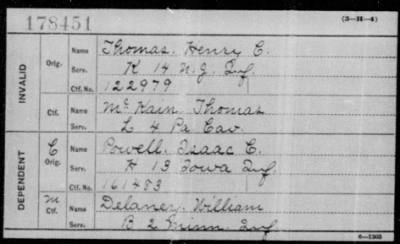 178451
(3-H-4)
INVALID
Orig.
Name Thomas. Henry C.
Serv. K 14 N.J. Inf.
Ctf. No. 122979
Ctf.
Name McKain, Thomas
Serv. L 4 Pa Cav.
DEPENDENT
C
Orig.
Name Powell. Isaac C.
Serv. K 13 Iowa Inf.
Ctf. No. 161483
M
Ctf.
Name Delaney. William
Serv. B 2 Minn. Inf